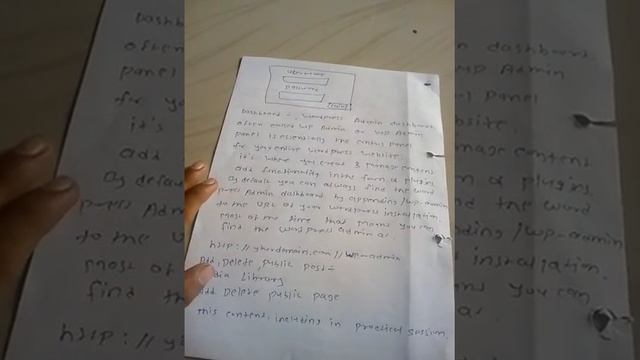 username
password
Dashboard -, wordpress Admin dashboard,
often called WP Admin or WP Admin
panel is essentially the control panel
for your entire wordpress website.
it's where you creat & manage content,
add functionality in the form a plugins,
By default you can always find the word
press Admin dashboard by appending /wp-admin
to the URL of your wordpress installation.
most of the time that means you can
find the wordpress admin as
http://yourdomain.com//wp-admin
Add, Delete, public post-
dia Library
Add Delete public page
This content including in practical session.